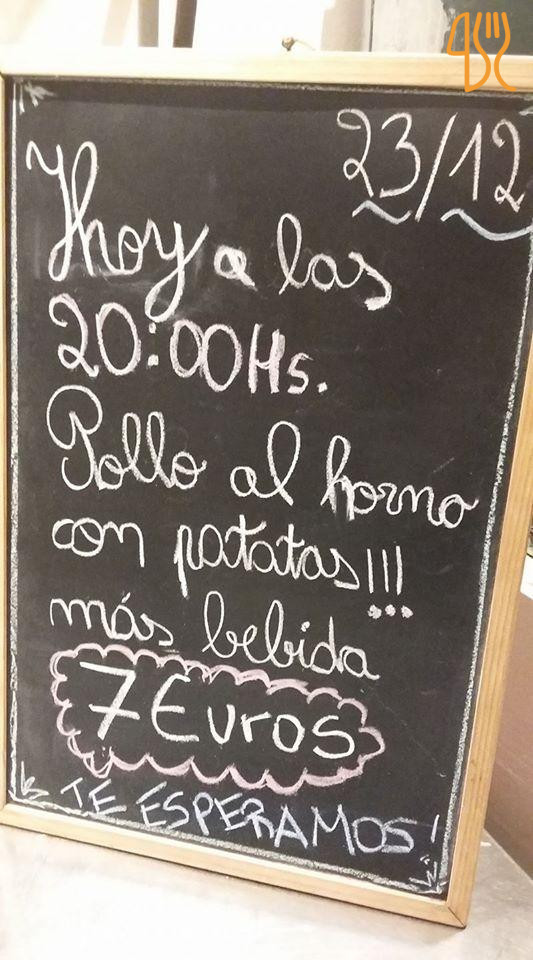 23/12
Hoy a las
20:00Hs.
Pollo al horno
con patatas!!!
más bebida
7 Euros
TE ESPERAMOS!